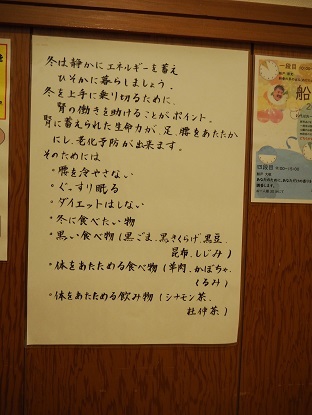 冬は静かにエネルギーを蓄え
ひそかに暮らしましょう。
冬を上手に乗り切るために、
腎の働きを助けることがポイント。
腎に蓄えられた生命力が、足、腰をあたたか
にし、老化予防が出来ます。
そのためには
・腰を冷やさない
・ぐっすり眠る
・ダイエットはしない
・冬に食べたい物
・黒い食べ物(黒ごま、黒きくらげ、黒豆、
昆布、しじみ)
・体をあたためる食べ物(羊肉、かぼちゃ、
くるみ)
・体をあたためる飲み物(シナモン茶、
杜仲茶)
一段目
船
四段目